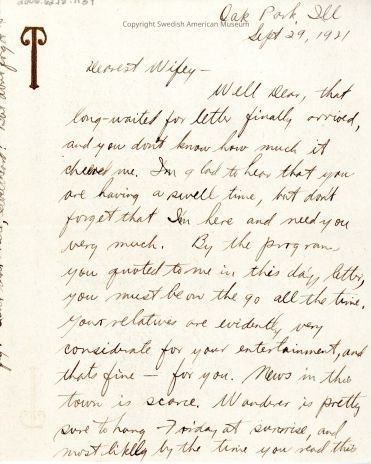 Copyright Swedish American Museum
Oak Park, Ill
Sept 29, 1921
T
Dearest Wifey –
Well Dear, that
long-waited for letter finally arrived,
and you don't know how much it
cheered me. I'm glad to hear that you
are having a swell time, but don't
forget that I'm here and need you
very much. By the program
you quoted to me in this day letter,
you must be on the go all the time.
Your relatives are evidently very
considerate for your entertainment, and
thats fine – for you. News in this
town is scarce. Wanderer is pretty
sure to hang Friday at sunrise, and
most likely by the time you read this